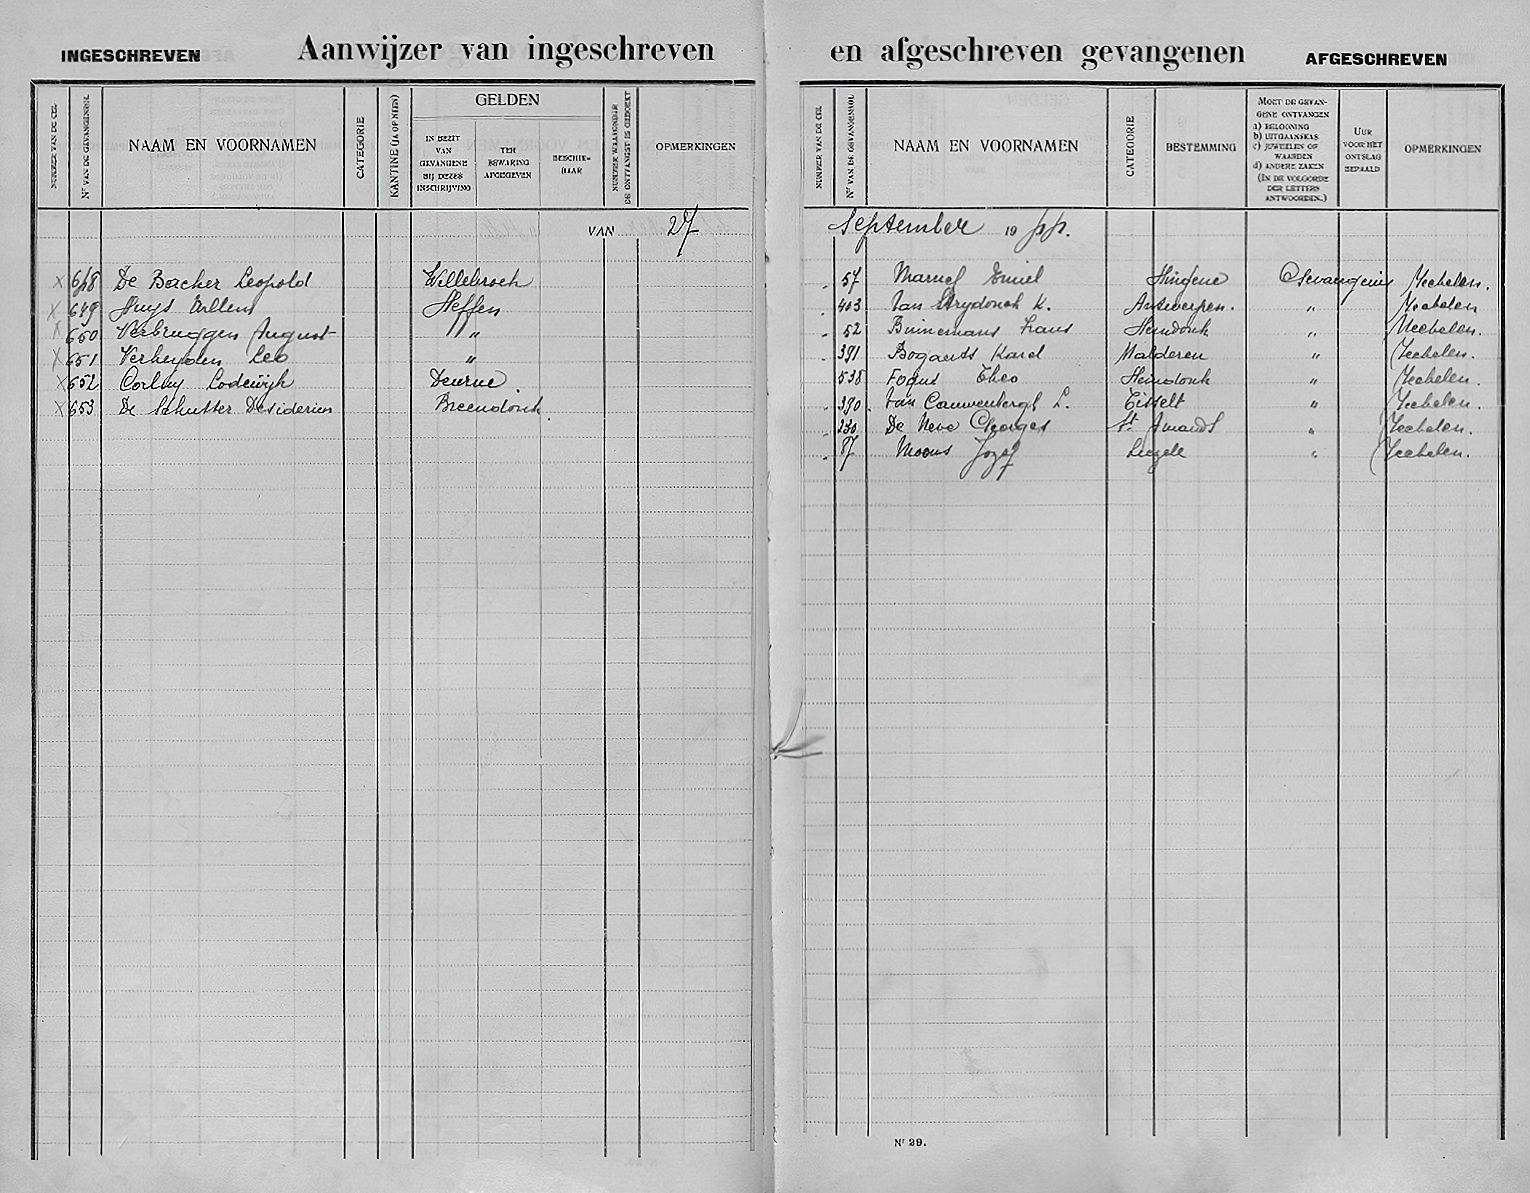 INGESCHREVEN
Aanwijzer van ingeschreven en afgeschreven gevangenen
AFGESCHREVEN
NUMMER VAN DE CEL
Nr VAN DE GEVANGENENROL
NAAM EN VOORNAMEN
CATEGORIE
KANTINE (JA OF NEEN)
GELDEN
IN BEZIT VAN GEVANGENE BIJ DEZES INSCHRIJVING
TER BEWARING AFGEGEVEN
BESCHIK-BAAR
NUMMER WAARONDER DE ONTVANGST IS GEBOEKT
OPMERKINGEN
VAN 27
x 648 De Backer Leopold Willebroek
x 649 Huys Willem Heffen
x 650 Verbruggen August "
x 651 Verheyden Leo "
x 652 Corluy Lodewijk Deurne
x 653 De Schutter Desiderius Breendonk
NUMMER VAN DE CEL
Nr VAN DE GEVANGENENROL
NAAM EN VOORNAMEN
CATEGORIE
BESTEMMING
MOET DE GEVAN-
GENE ONTVANGEN
a) BELOONING
b) UITGAANSKAS
c) JUWEELEN OF
WAARDEN
d) ANDERE ZAKEN
(IN DE VOLGORDE
DER LETTERS
ANTWOORDEN.)
UUR
VOOR HET
ONTSLAG
BEPAALD
OPMERKINGEN
September 1944.
57 Emiel Hingene Gevangenis Mechelen.
403 Van Strydonck K. Antwerpen. " Mechelen
52 Binnemans Frans Heindonk " Mechelen.
391 Bogaerts Karel Malderen " Mechelen.
538 Theo Heindonk " Mechelen.
390 Van Cauwenbergh L. Tisselt " Mechelen.
230 De Neve Georges St Amands " Mechelen.
87 Moons Jozef Liezele " Mechelen.
Nr 29.